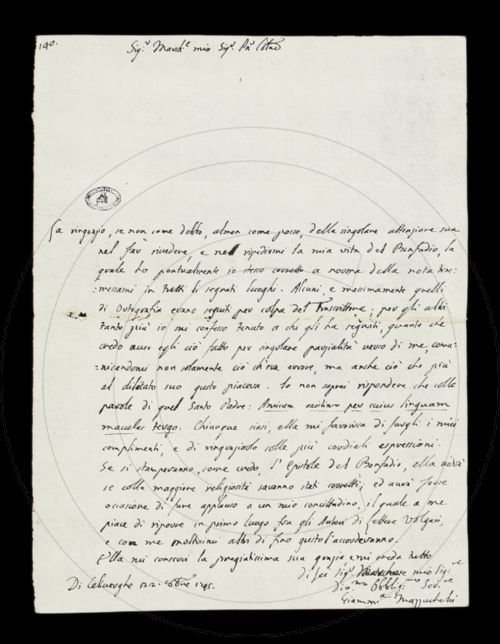 140.
Sig.r March.e mio Sig.r Pn̄ Col.mo
La ringrazio, se non come debbo, almen come posso, della singolare attenzione sua
nel far rivedere, e nel rispedirmi la mia vita del Bonfadio, la
quale ho pontualmente io stesso corretta a norma della nota tras:
:messami in tutti li segnati luoghi. Alcuni, e massimamente quelli
di Ortografia erano seguiti per colpa del Trascrittore; per gli altri
tanto più io mi confesso tenuto a chi gli ha segnati, quanto che
credo aver egli ciò fatto per singolare parzialità verso di me, comu:
:nicandomi non solamente ciò ch'era errore, ma anche ciò che più
al dilicato suo gusto piaceva. Io non saprei rispondere che colle
parole di quel Santo Padre: Amicum existimo per cuius linguam
maculas tergo. Chiunque siasi, ella mi favorisca di fargli i miei
complimenti, e di ringraziarlo colle più cordiali espressioni.
Se si stamperanno, come credo, l'Epistole del Bonfadio, ella vedrà
se colla maggiore religiosità saranno stati corretti; ed avrà forse
occasione di fare applauso a un mio concittadino, il quale a me
piace di riporre in primo luogo fra gli Autori di lettere Volgari,
e con me moltissimi altri di fino gusto l'accorderanno.
Ella mi conservi la pregiatissima sua grazia e mi creda tutto
di Lei Sig.r Marchese mio Sig.e
Div.mo Obblig.mo Ser.re
Giamm.a Mazzuchelli